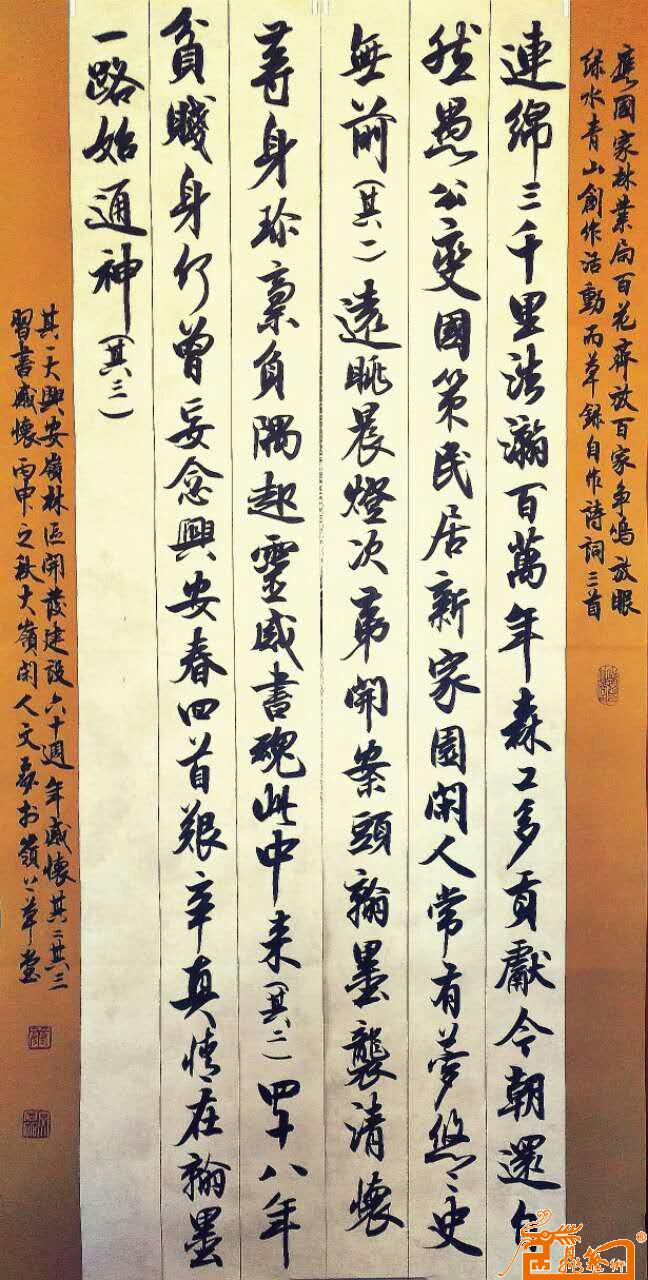 應國家林業局百花齊放百家争鳴放眼
绿水青山創作活動而草録自作詩詞三首
連綿三千里浩瀚百萬年森工多貢獻今朝還自
然愚公變國策民居新家園閑人常有夢悠悠史
無前(其一)遠眺晨燈次第開案頭翰墨襲清懷
等身珍稾負隅起靈感書魂此中来(其二)四十八年
貧賤身何曾妄念興安春四首艱辛真情在翰墨
一路始通神(其三)
其一大興安嶺林區開發建設六十週年感懷其二其三
習書感懷丙申之秋大嶺閑人文 於嶺上草堂